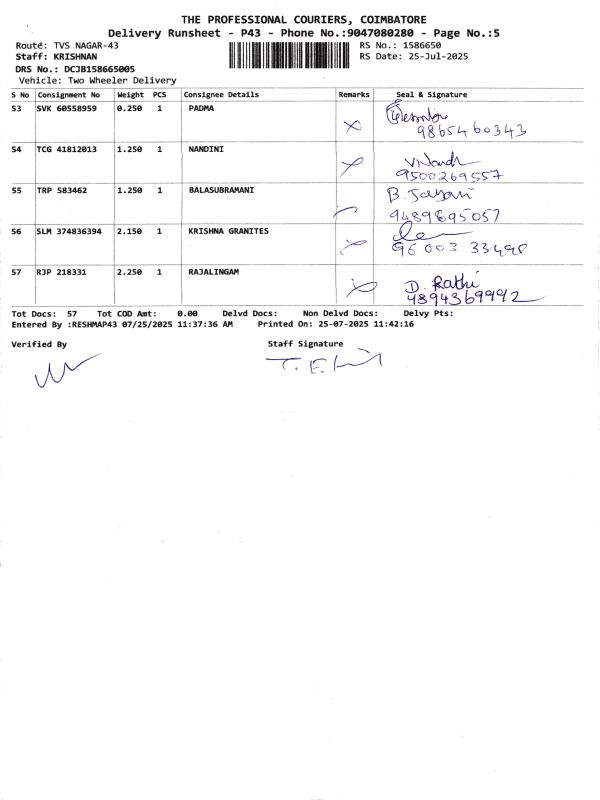 THE PROFESSIONAL COURIERS, COIMBATORE
Delivery Runsheet - P43 - Phone No.:9047080280 - Page No.:5
Route: TVS NAGAR-43 RS No.: 1586650
Staff: KRISHNAN RS Date: 25-Jul-2025
DRS No.: DCJB158665005
Vehicle: Two Wheeler Delivery
S No Consignment No Weight PCS Consignee Details Remarks Seal & Signature
53 SVK 60558959 0.250 1 PADMA
9865460343
54 TCG 41812013 1.250 1 NANDINI
9500269557
55 TRP 583462 1.250 1 BALASUBRAMANI B. Jayani
9489895057
56 SLM 374836394 2.150 1 KRISHNA GRANITES
96003 33498
57 RJP 218331 2.250 1 RAJALINGAM D. Rathi
4894369992
Tot Docs: 57 Tot COD Amt: 0.00 Delvd Docs: Non Delvd Docs: Delvy Pts:
Entered By :RESHMAP43 07/25/2025 11:37:36 AM Printed On: 25-07-2025 11:42:16
Verified By Staff Signature